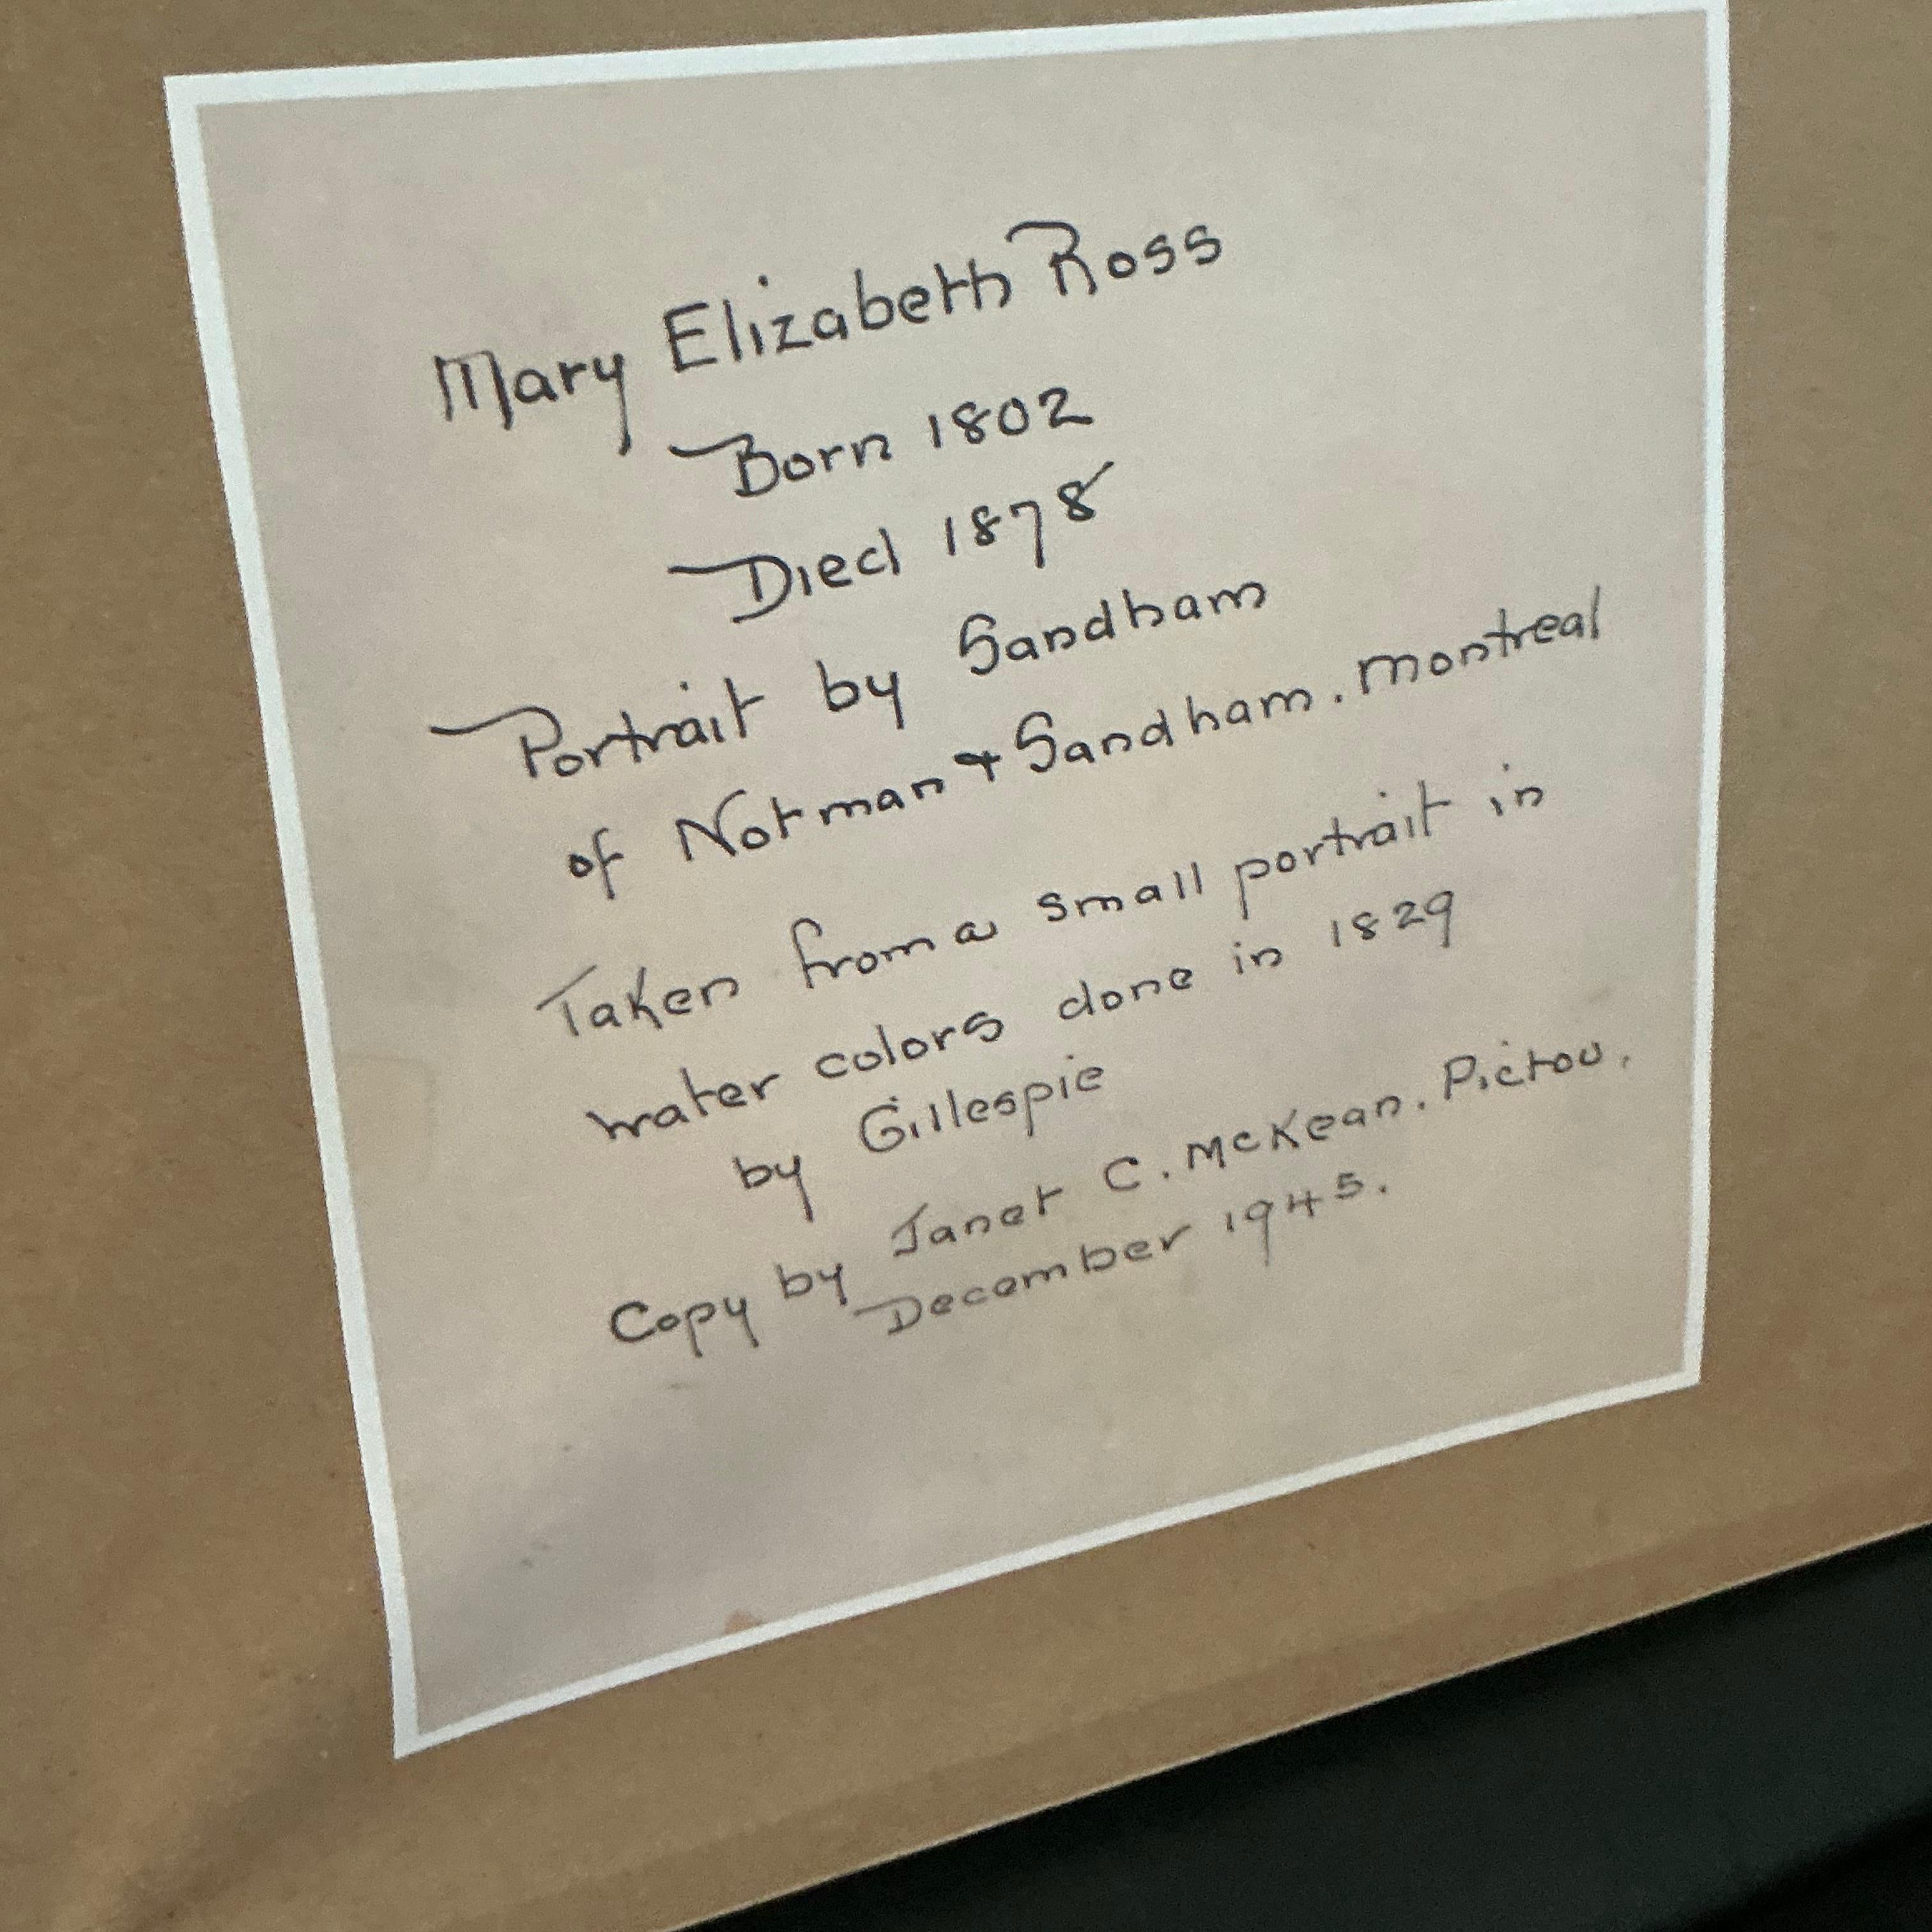 Mary Elizabeth Ross
Born 1802
Died 1878
Portrait by Sandham
of Notman & Sandham. Montreal
Taken from a small portrait in
water colors done in 1829
by Gillespie
Copy by Janet C. McKean. Pictou.
December 1945.